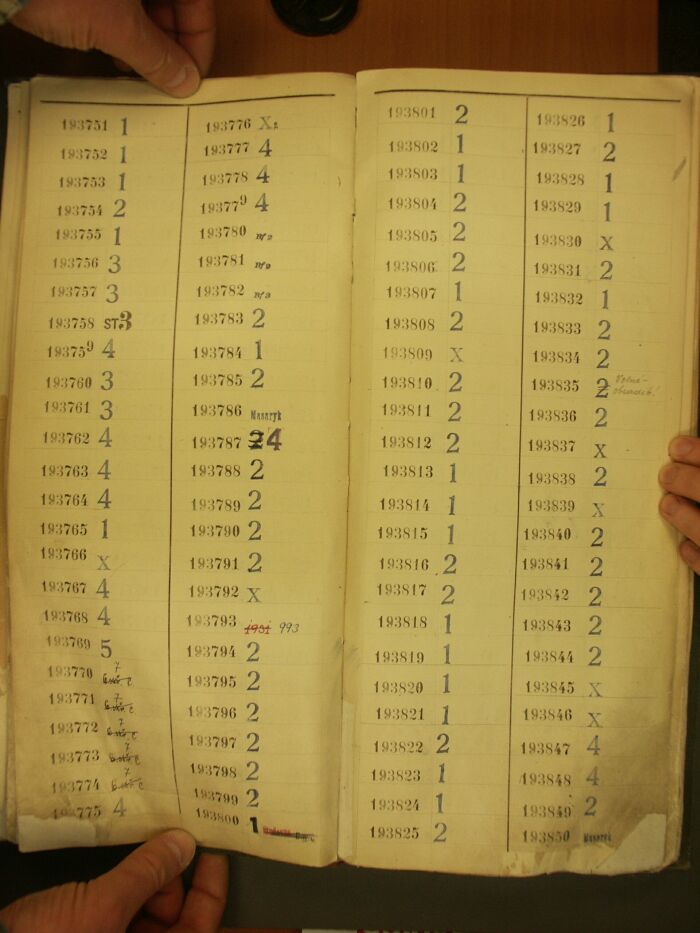 193751 1
193752 1
193753 1
193754 2
193755 1
193756 3
193757 3
193758 ST3
193759 4
193760 3
193761 3
193762 4
193763 4
193764 4
193765 1
193766 X
193767 4
193768 4
193769 5
193770 7
193771 7
193772 7
193773 7
193774 7
193775 4
193776 X
193777 4
193778 4
193779 4
193780
193781
193782
193783 2
193784 1
193785 2
193786 Masaryk
193787 2 4
193788 2
193789 2
193790 2
193791 2
193792 X
193793 1931 993
193794 2
193795 2
193796 2
193797 2
193798 2
193799 2
193800 1
193801 2
193802 1
193803 1
193804 2
193805 2
193806 2
193807 1
193808 2
193809 X
193810 2
193811 2
193812 2
193813 1
193814 1
193815 1
193816 2
193817 2
193818 1
193819 1
193820 1
193821 1
193822 2
193823 1
193824 1
193825 2
193826 1
193827 2
193828 1
193829 1
193830 X
193831 2
193832 1
193833 2
193834 2
193835 2
193836 2
193837 X
193838 2
193839 X
193840 2
193841 2
193842 2
193843 2
193844 2
193845 X
193846 X
193847 4
193848 4
193849 2
193850 Masaryk